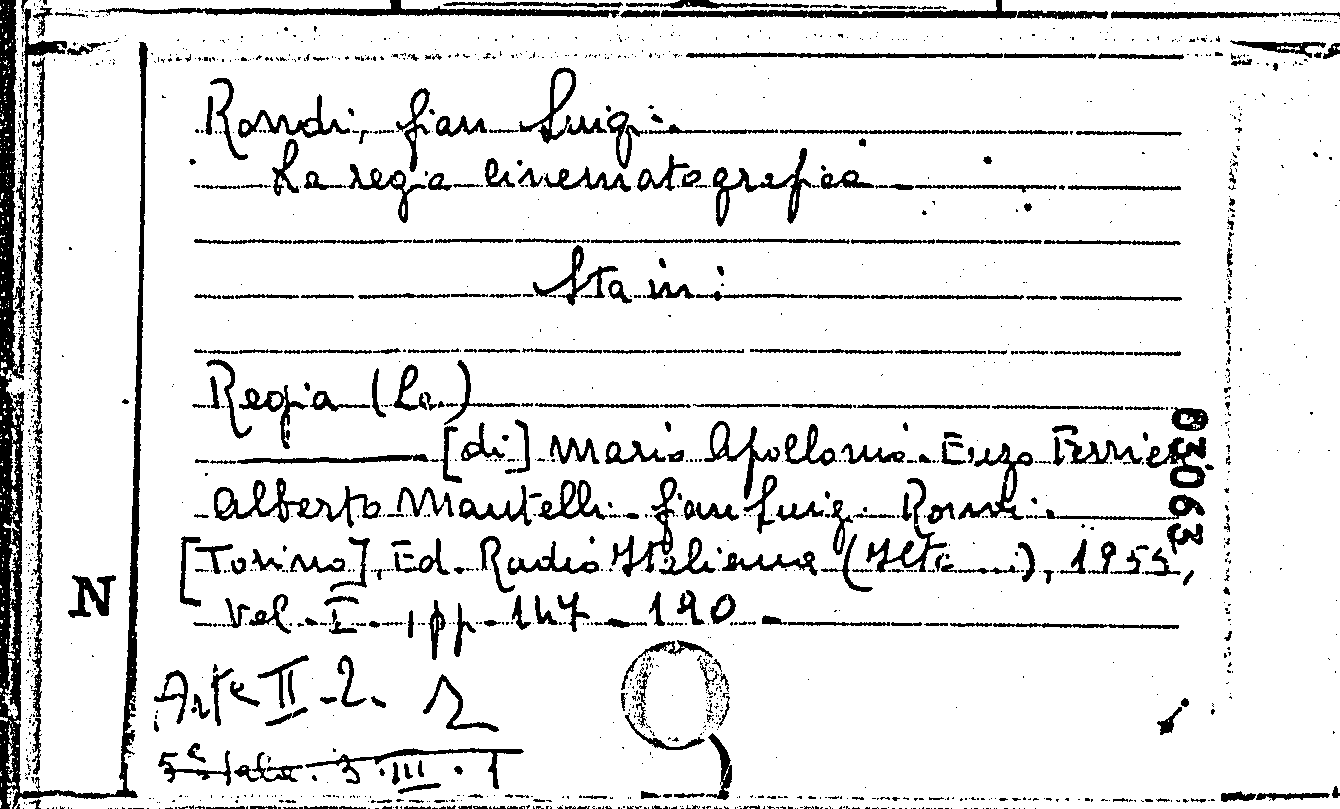 Rondi, Gian Luigi.
La regia cinematografica -
Sta in:
Regia (La)
[di] Mario Apollonio. Enzo Ferrieri
Alberto Mantelli - Gian Luigi Rondi.
[Torino], Ed. Radio Italiana (Ilte ...), 1955,
Vol. I - pp. 147 - 190 -
03063
N
Arte II - 2.
3.III.1